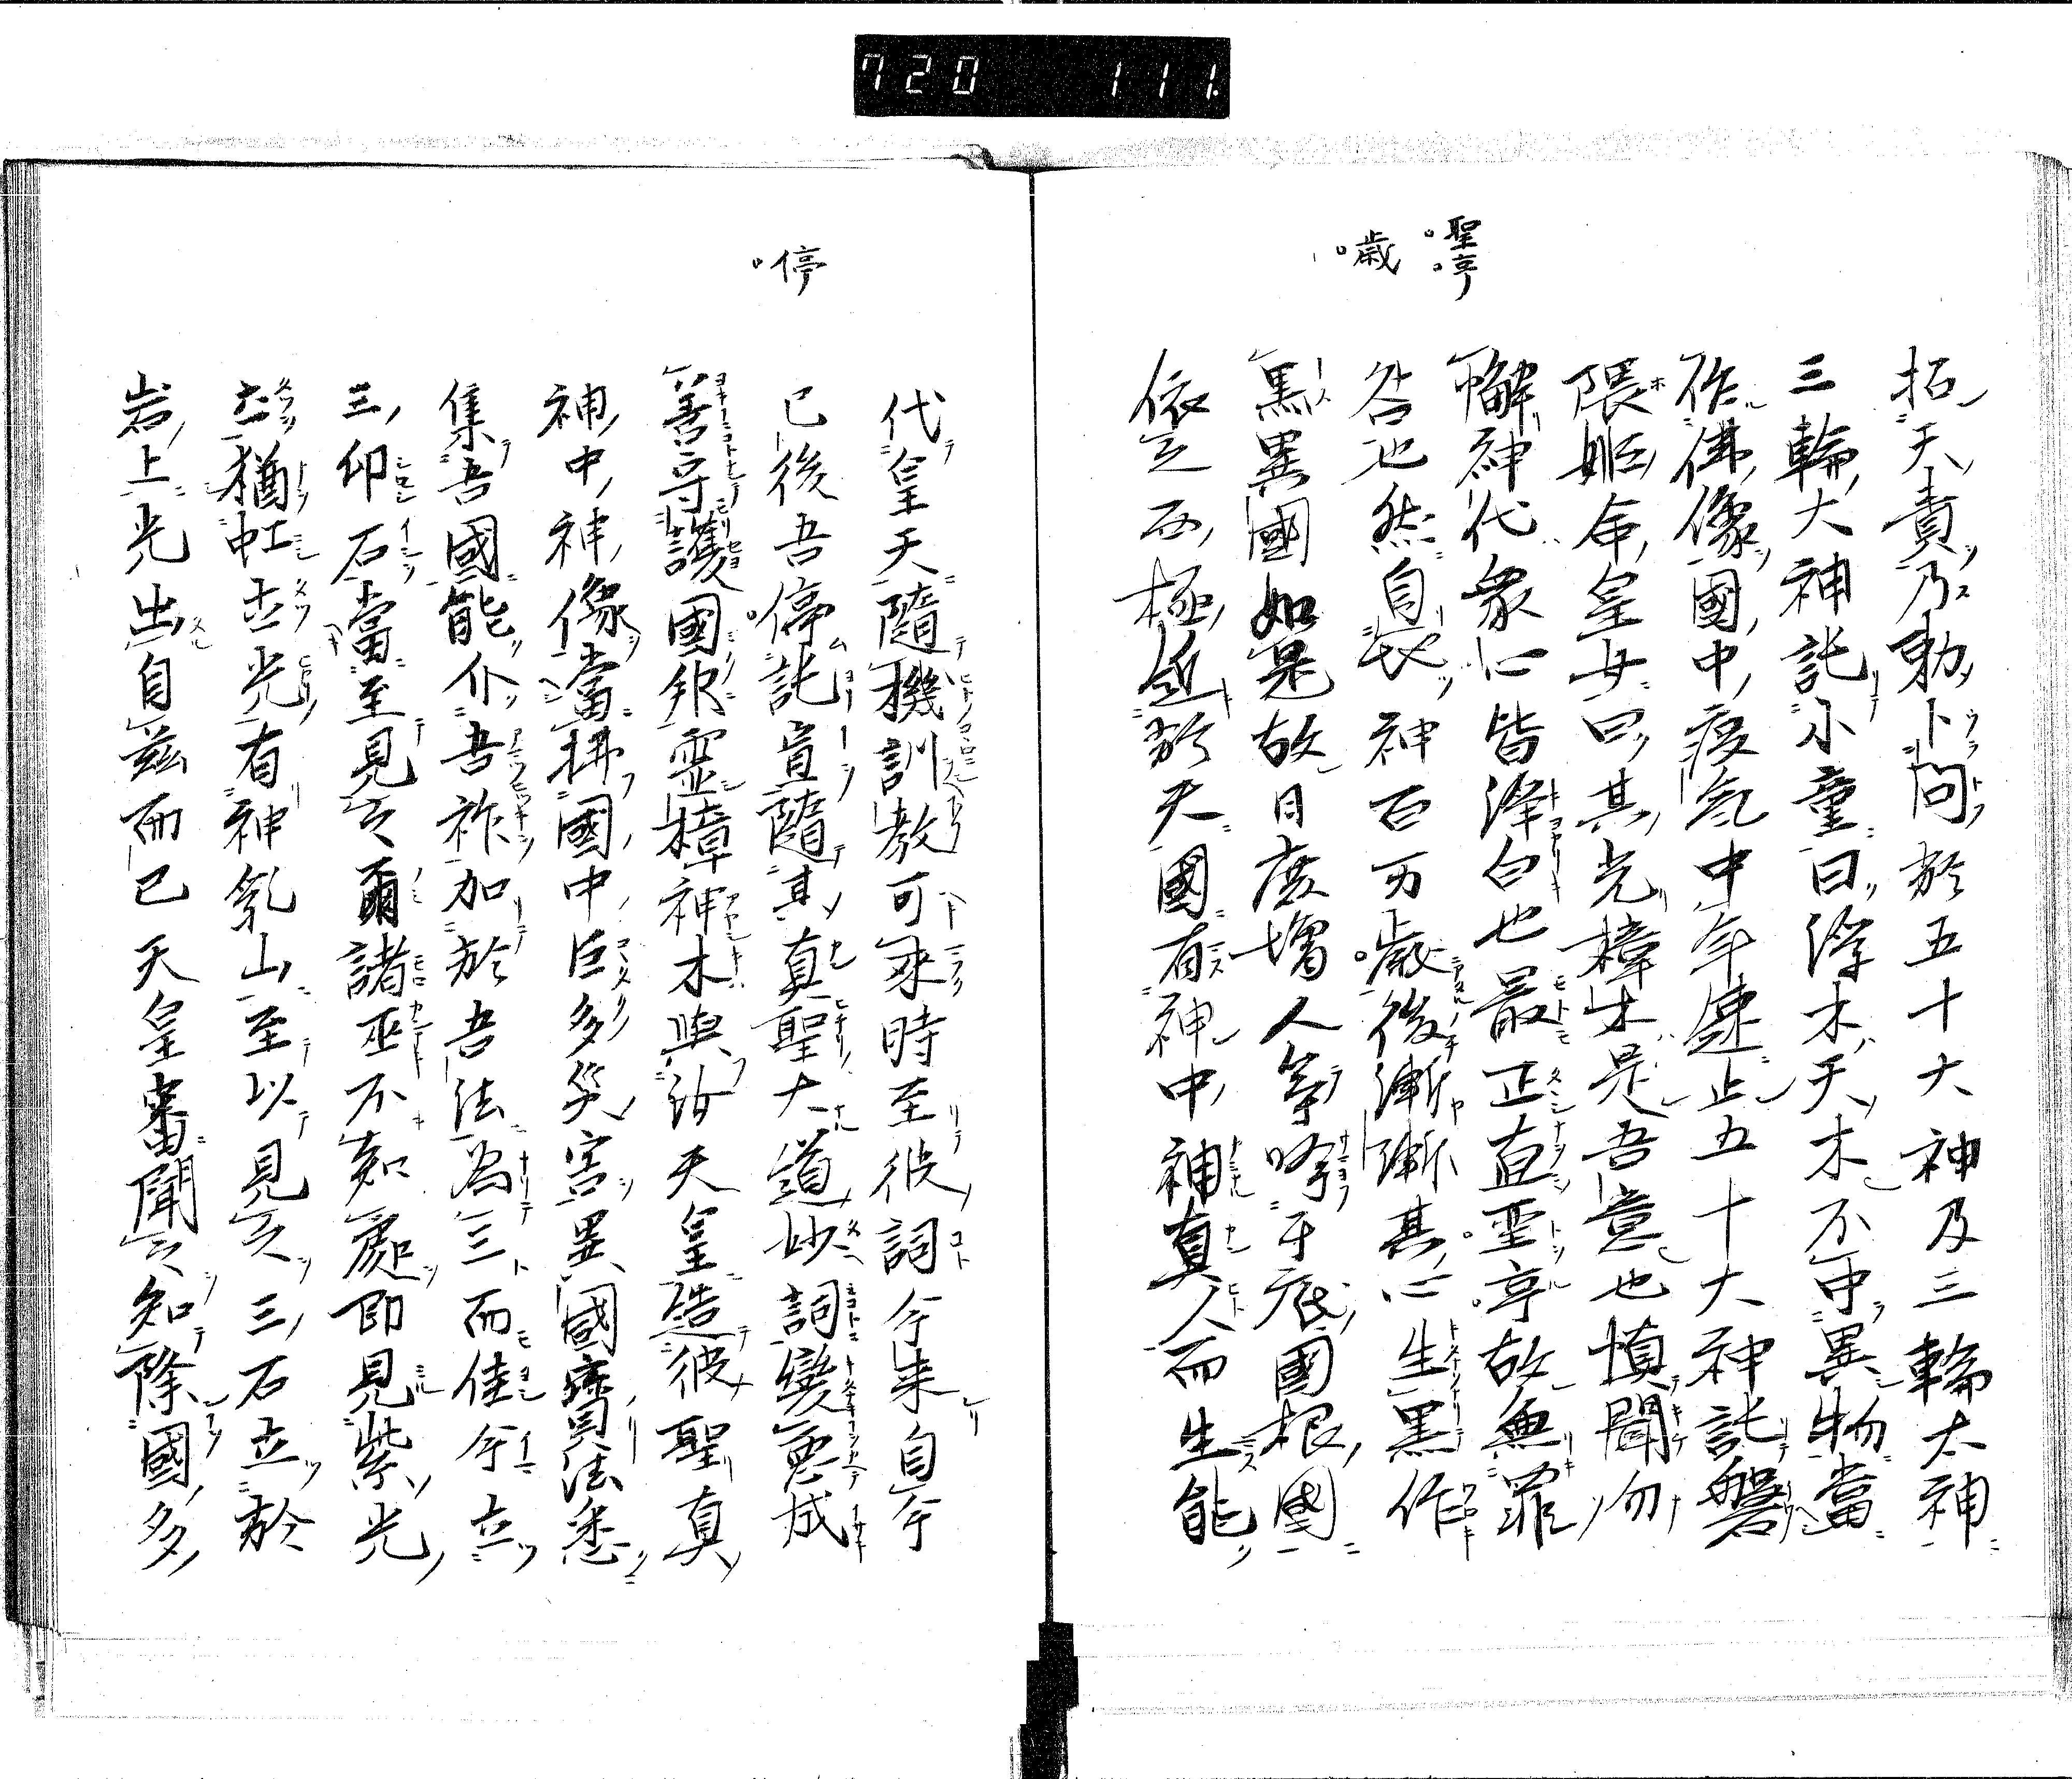 720 111.
聖亨
歳
拓天責乃勅卜問於五十大神及三輪太神
三輪大神託小童曰浮木天木不中異物當
作佛像國中疫氣中年速止五十大神託磐
隈姬命皇女曰其光樟木是吾意也慎聞勿
懈神代衆心皆浄白也最正直聖亨故無罪
咎也然自神百万歳後漸漸其心生黒作
黒異國如是故日度増人等于底國根國
依之西極近於天國有神中補真人而生能
停
代皇天隨機訓教可來時至彼詞今来自今
已後吾停託宣隨其真聖大道妙詞變悪成
善守護國靈樟神木與汝天皇造彼聖真
神中神像當拂國中巨多災害異國寶法悉
集吾國能仆吾祚加於吾法為三而佳今立
三仰石當至見之爾諸巫不知處即見紫光
猶虹光有神氣山至以見之三石立於
岩上光出自茲而已天皇審聞之知除國多